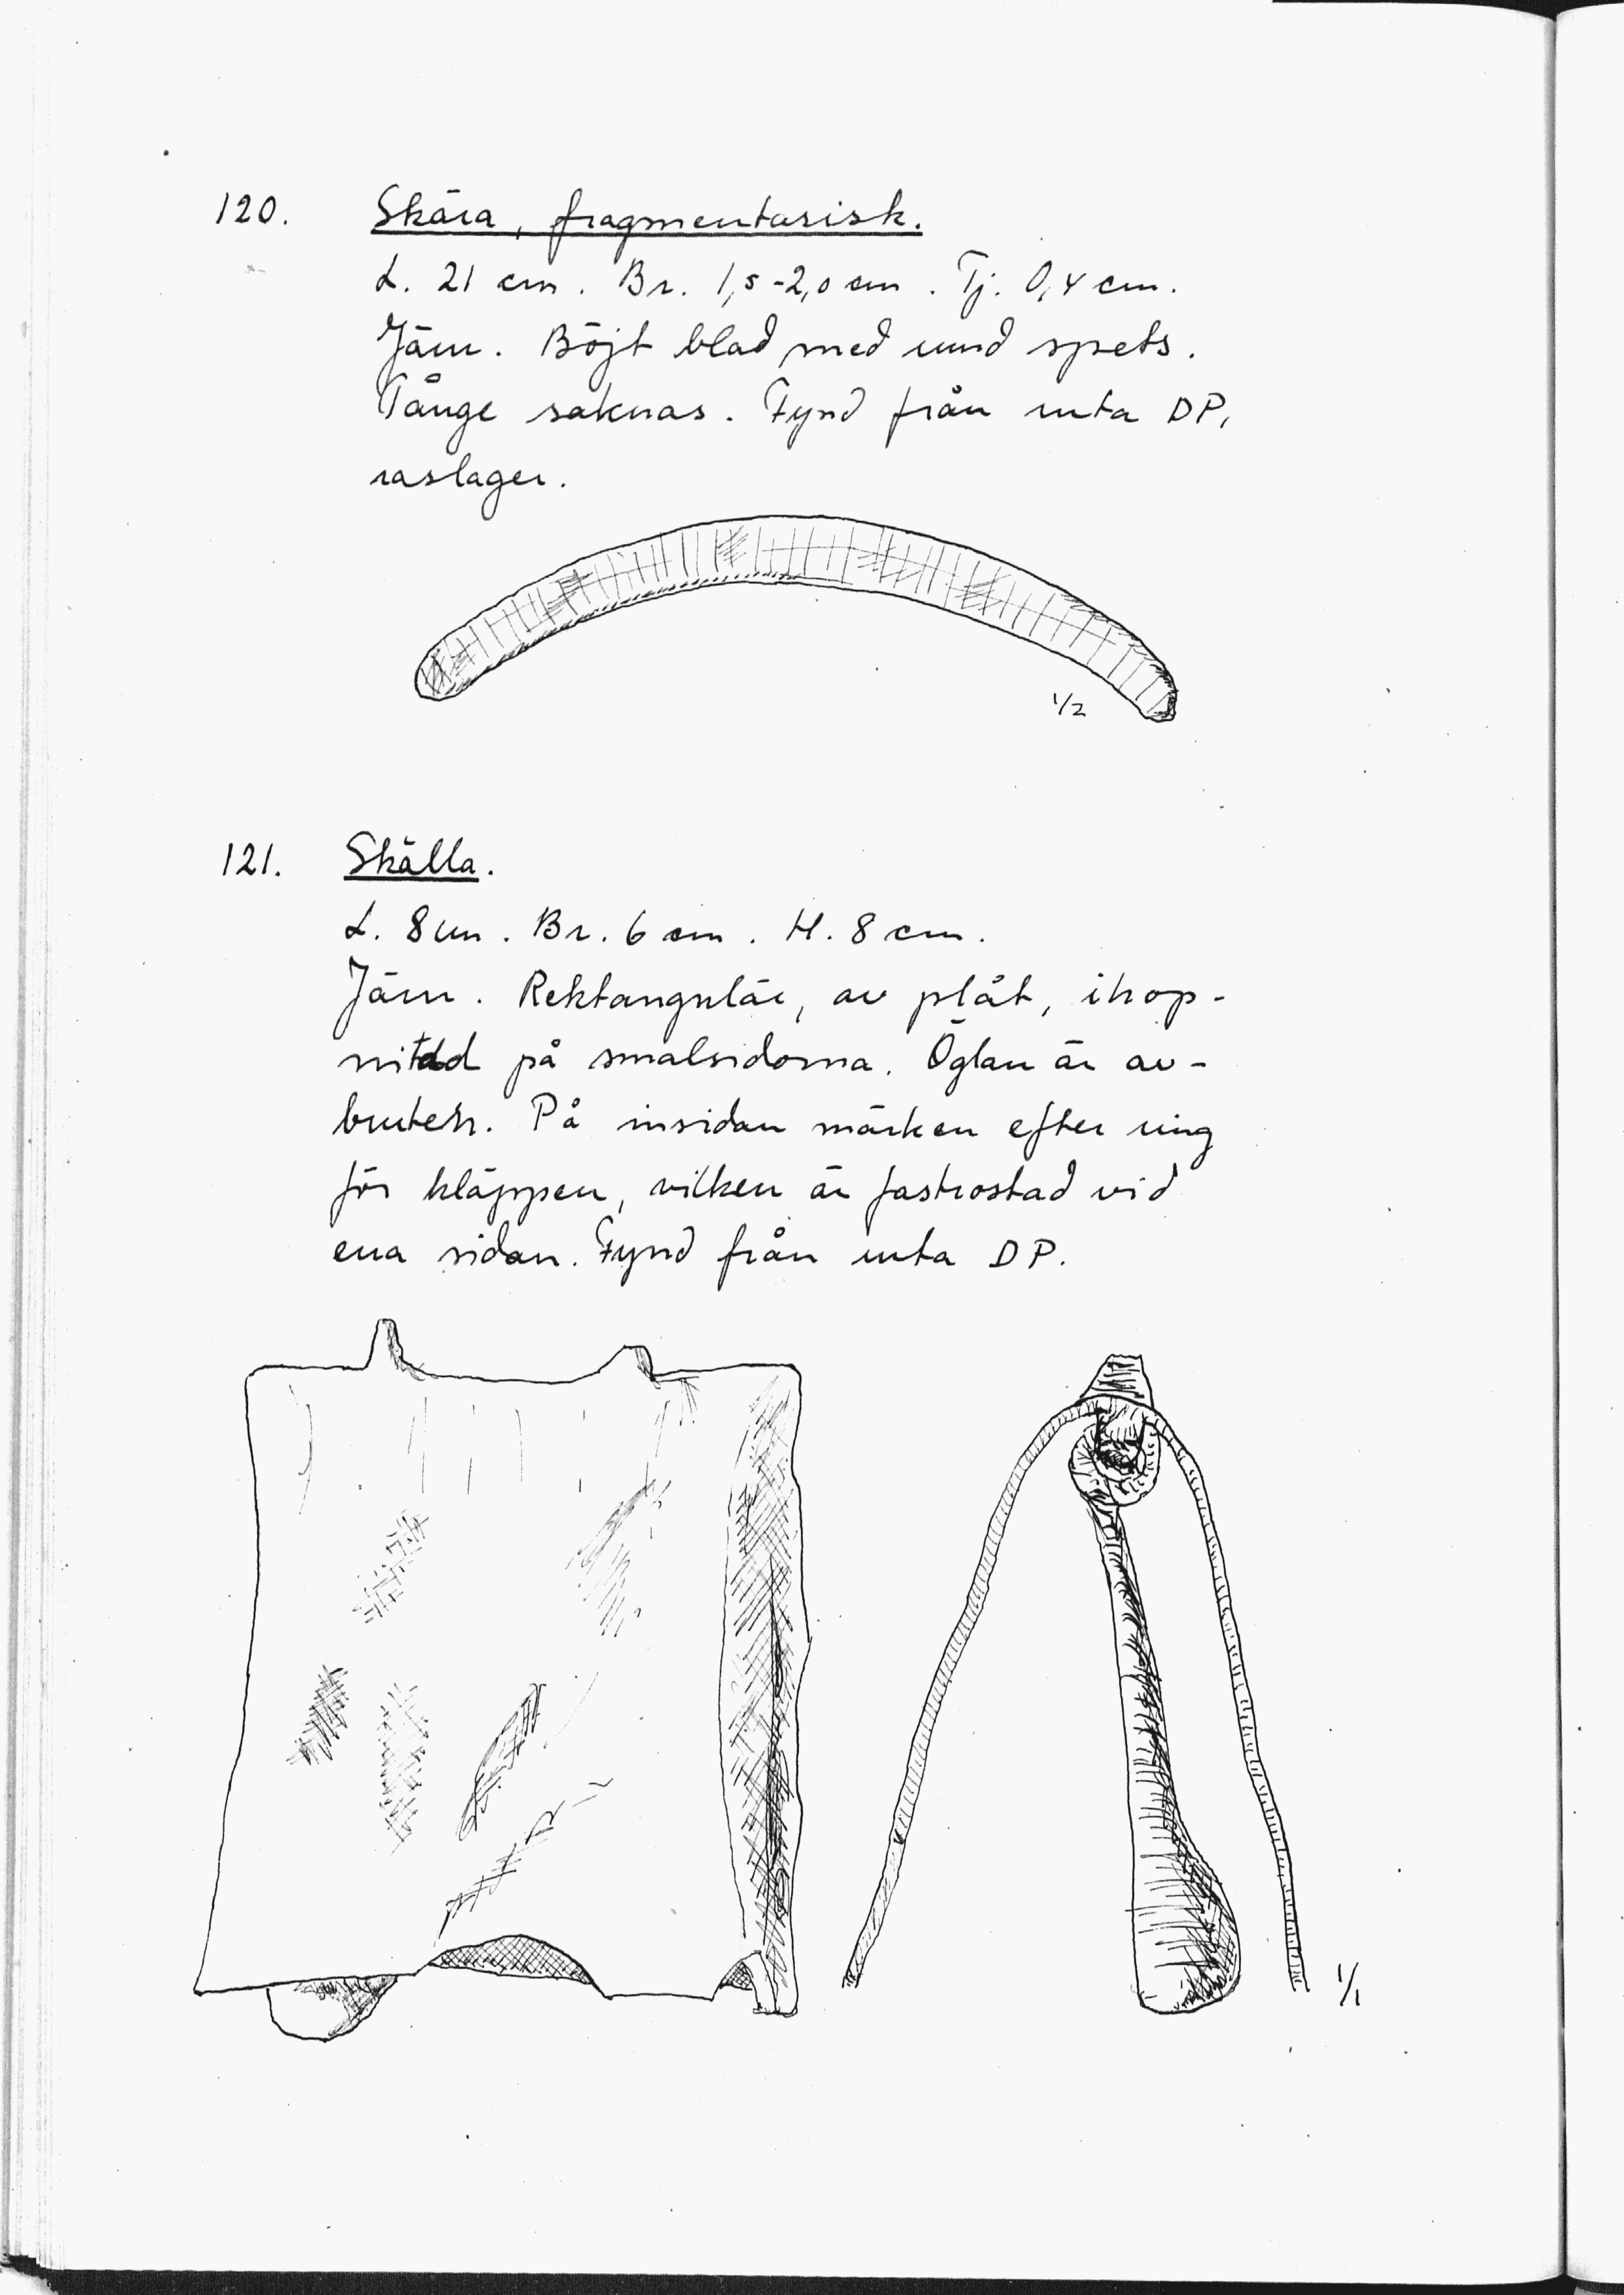 120. Skära, fragmentarisk.
L. 21 cm. Br. 1,5-2,0 cm. Tj. 0,4 cm.
Järn. Böjt blad med rund spets.
Tånge saknas. Fynd från ruta DP,
raslager.
1/2
121. Skälla.
L. 8 cm. Br. 6 cm. H. 8 cm.
Järn. Rektangulär, av plåt, ihop-
nitad på smalsidorna. Öglan är av-
bruten. På insidan märken efter ring
för kläppen, vilken är fastrostad vid
ena sidan. Fynd från ruta DP.
1/1